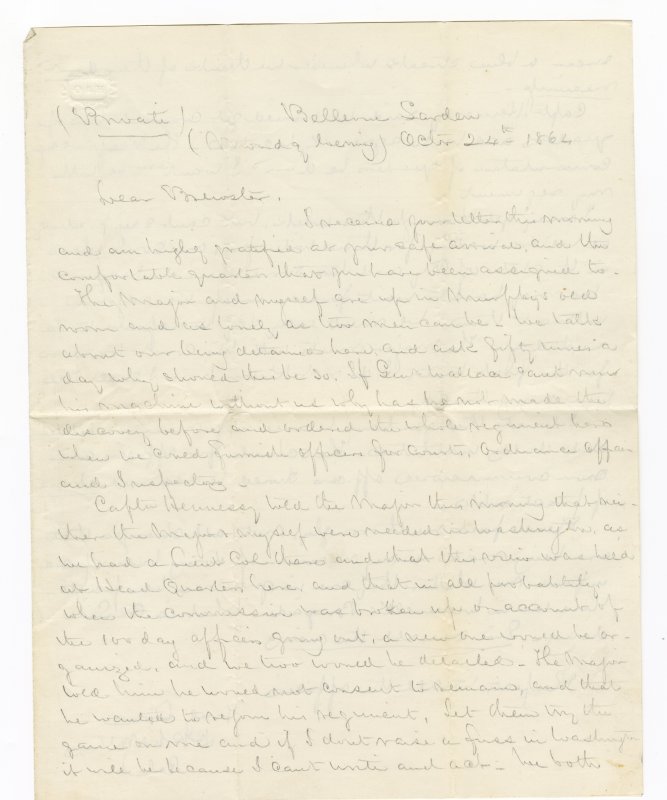 (Private) Bellevue Garden
(Monday Evening) Octr 24th 1864
Dear Brewster,
I received your letter this morning
and am highly gratified at your safe arrival, and the
comfortable quarters that you have been assigned to.
The Major and myself are up in Murphy's old
room and as lonely as two men can be. We talk
about our being detained here and ask fifty times a
day why should this be so, If Genl Wallace can't run
his machine without us why has he not made the
discovery before and ordered the whole regiment here
when we could furnish officers for Courts, Ordnance offices
and Inspecting
Captn Hennessy told the Major this morning that nei-
ther the Major & myself were needed in Washington, as
we had a Lieut Col there and that this view was held
at Head Quarters here, and that in all probability
when the commission was broken up on account of
the 100 day officers going out, a new one would be or-
ganized, and we two would be detailed - The Major
told him he would not consent to remain, and that
he wanted to rejoin his regiment, Let them try the
game on me and if I dont raise a fuss in Washington
it will be because I can't write and act - We both